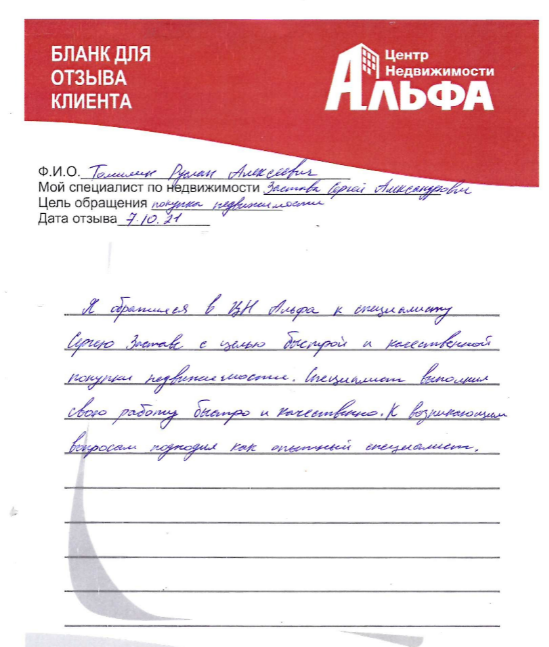 БЛАНК ДЛЯ
ОТЗЫВА
КЛИЕНТА
Центр
Недвижимости
АЛЬФА
Ф.И.О. Томилин Руслан Алексеевич
Мой специалист по недвижимости Застава Сергей Александрович
Цель обращения покупка недвижимости
Дата отзыва 7.10.21
Я обратился в ЦН Альфа к специалисту
Сергею Заставе с целью быстрой и качественной
покупки недвижимости. Специалист выполнил
свою работу быстро и качественно. К возникающим
вопросам подходил как опытный специалист.